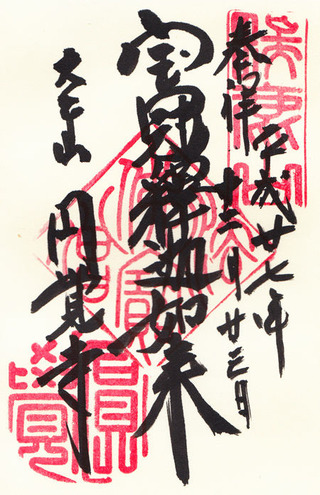 奉拝
平成廿七年
十二月廿三日
宝冠釋迦如来
大本山
円覚寺
佛法僧寶
圓覺